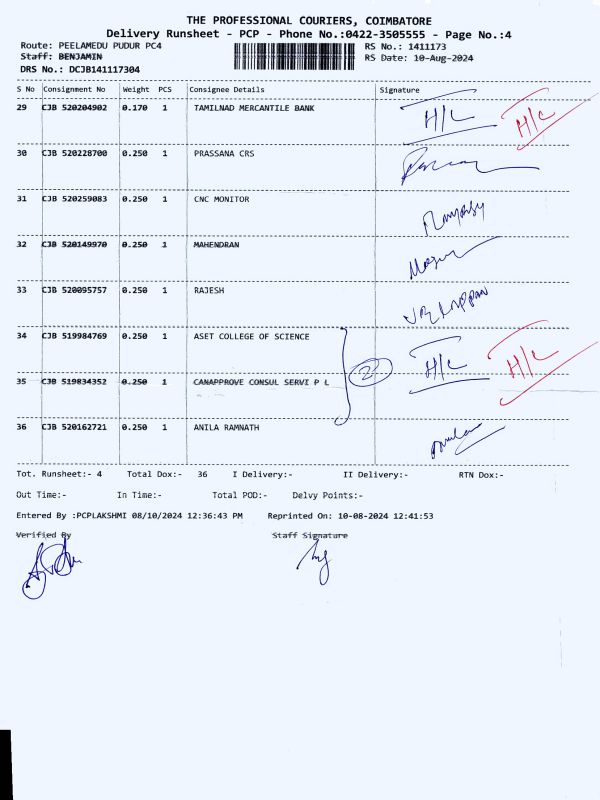 THE PROFESSIONAL COURIERS, COIMBATORE
Delivery Runsheet - PCP - Phone No.:0422-3505555 - Page No.:4
Route: PEELAMEDU PUDUR PC4 RS No.: 1411173
Staff: BENJAMIN RS Date: 10-Aug-2024
DRS No.: DCJB141117304
S No Consignment No Weight PCS Consignee Details Signature
29 CJB 520204902 0.170 1 TAMILNAD MERCANTILE BANK H/C H/C
30 CJB 520228700 0.250 1 PRASSANA CRS
31 CJB 520259083 0.250 1 CNC MONITOR
32 CJB 520149970 0.250 1 MAHENDRAN
33 CJB 520095757 0.250 1 RAJESH
34 CJB 519984769 0.250 1 ASET COLLEGE OF SCIENCE H/C H/C
35 CJB 519834352 0.250 1 CANAPPROVE CONSUL SERVI P L 2
36 CJB 520162721 0.250 1 ANILA RAMNATH
Tot. Runsheet:- 4 Total Dox:- 36 I Delivery:- II Delivery:- RTN Dox:-
Out Time:- In Time:- Total POD:- Delvy Points:-
Entered By :PCPLAKSHMI 08/10/2024 12:36:43 PM Reprinted On: 10-08-2024 12:41:53
Verified By Staff Signature